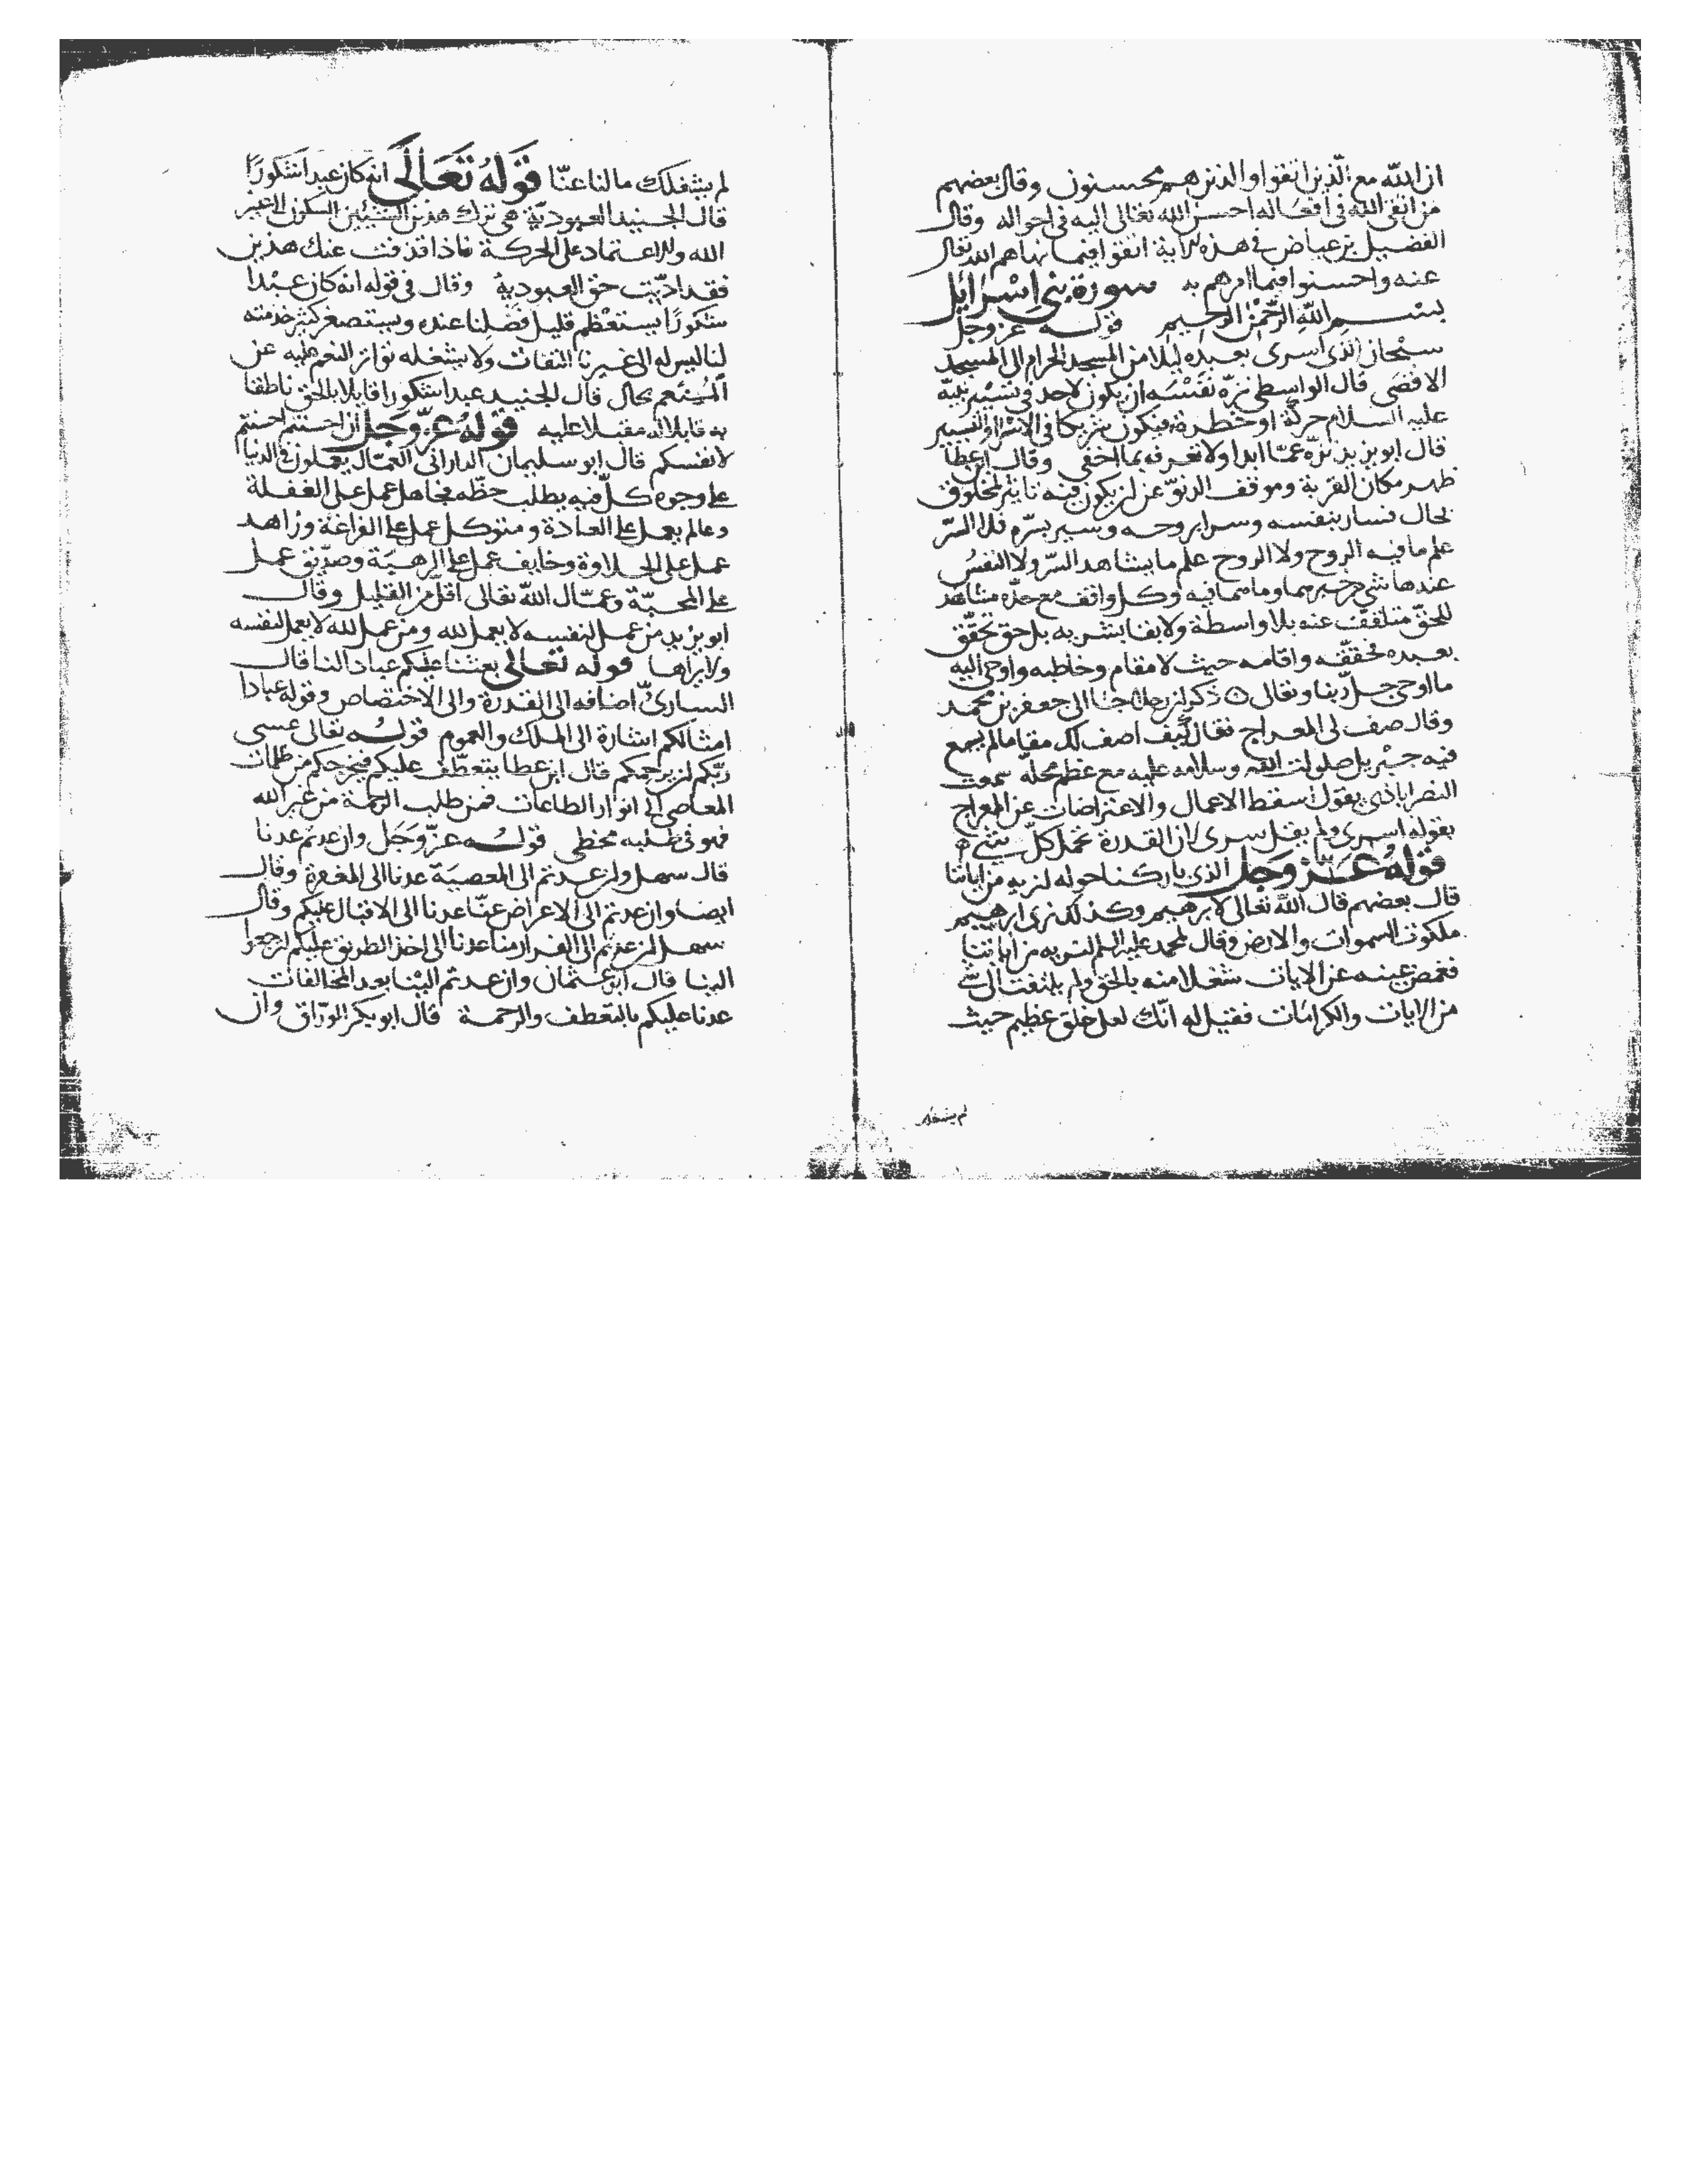 ان الله مع الذين اتقوا والذين هم محسنون وقال بعضهم
من اتقى الله فى افعاله احسن الله تعالى اليه فى احواله وقال
الفضيل بن عياض فى هذه الاية اتقوا فيما نهاهم الله تعالى
عنه واحسنوا فيما امرهم به سورة بنى اسرايل
بسم الله الرحمن الرحيم قوله عز وجل
سبحان الذى اسرى بعبده ليلا من المسجد الحرام الى المسجد
الاقصى قال الواسطى نزّه نفسه ان يكون لاحد فى تسيير نبيّه
عليه السلام حركة او خطرة فيكون شريكا فى الاسرا والتسيير
قال ابو يزيد نزّه عمّا ابدا ولا تعرفه بما اخفى وقال ابن عطا
طهر مكان القربة وموقف الدنوّ عن ان يكون فيه تاثير لمخلوق
بحال فسار بنفسه وسرا بروحه وسير بسرّه فلا السّر
علم ما فيه الروح ولا الروح علم ما يشاهد السّر ولا النفس
عندها شى من خبرهما وما هما فيه وكل واقف مع حدّه مشاهد
للحق متلقف عنه بلا واسطة ولا بقا بشريه بل حق تحقّق
بعبده فحققه واقامه حيث لا مقام وخاطبه واوحى اليه
ما اوحى جلّ ربنا وتعالى ذكر ان رجلا جا الى جعفر بن محمد
وقال صف لى المعراج فقال كيف اصف لك مقاما لم يسع
فيه جبريل صلوات الله وسلامه عليه مع عظم محلّه سمعت
النصراباذى يقول اسقط الاعمال والاعتراضات عن المعراج
بقوله اسرى ولم يقل سرى لان القدرة تحمل كلّ شى
قوله عزّ وجل الذى باركنا حوله لنريه من اياتنا
قال بعضهم قال الله تعالى لابرهيم وكذلك نرى ابرهيم
ملكوت السموات والارض وقال لمحمد عليه السلم لنريه من اياتنا
فغمض عينه عن الايات شغلا منه بالحق ولم يلتفت الى شى
من الايات والكرامات فقيل له انّك لعلى خلق عظيم حيث
لم يشغلك
لم يشغلك ما لنا عنّا قوله تعالى انه كان عبدا شكورًا
قال الجنيد العبوديّة هى ترك هذين الشيئين السكون الى غير
الله والاعتماد على الحركة فاذا فقدت عنك هذين
فقد ادّيت حق العبودية وقال فى قوله انه كان عبْدا
شكورًا يستعظم قليل فضلنا عنده ويستصغر كثير خدمته
لنا ليس له الى غيرنا التفات ولا يشغله تواتر النعم عليه عن
المنعم بحال قال الجنيد عبدا شكورا قايلا بالحق ناطقا
به قابلا له مقبلا عليه قوله عزّ وجل ان احسنتم احسنتم
لانفسكم قال ابو سليمان الدارانى العمّال يعملون فى الدنيا
على وجوه كلّ فيه يطلب حظّه فجاهل عمل على الغفلة
وعالم يعمل على العادة ومتوكل عمل على الفراغة وزاهد
عمل على الحلاوة وخايف عمل على الرهبة وصدّيق عمل
على المحبّة وعمّال الله تعالى اقلّ من القليل وقال
ابو يزيد من عمل لنفسه لا يعمل لله ومن عمل لله لا يعمل لنفسه
ولا يراها قوله تعالى بعثنا عليكم عبادا لنا قال
السارىّ اضافه الى القدرة والى الاختصاص وقوله عبادا
امثالكم اشارة الى الملك والعموم قوله تعالى عسى
ربّكم ان يرحمكم قال ابن عطا يتعطّف عليكم فيخرجكم من ظلمات
المعاصى الى انوار الطاعات فمن طلب الرحمة من غير الله
فهو فى طلبه مخطى قوله عزّ وجَل وان عدتم عدنا
قال سهل وان عدتم الى المعصية عدنا الى المغفرة وقال
ايضا وان عدتم الى الاعراض عنّا عدنا الى الاقبال عليكم وقال
سهل ان عدتم الى الفرار منا عدنا الى اخذ الطريق عليكم لترجعوا
الينا قال ابو عثمان وان عدتم الينا بعد المخالفات
عدنا عليكم بالتعّطف والرحمة قال ابو بكر الورّاق وان